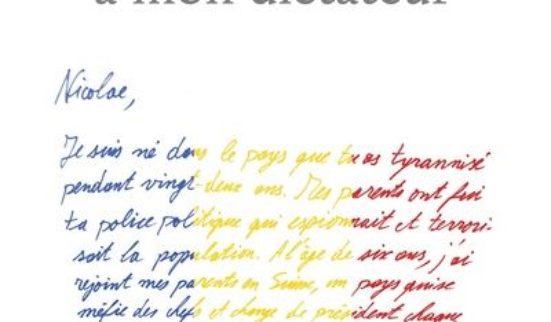 à mon dictateur
Nicolae,
Je suis né dans le pays que tu as tyrannisé
pendant vingt-deux ans. Mes parents ont fui
ta police politique qui espionnait et terrori-
sait la population. A l'âge de six ans, j'ai
rejoint mes parents en Suisse, un pays qui se
méfie des chefs et change de président chaque